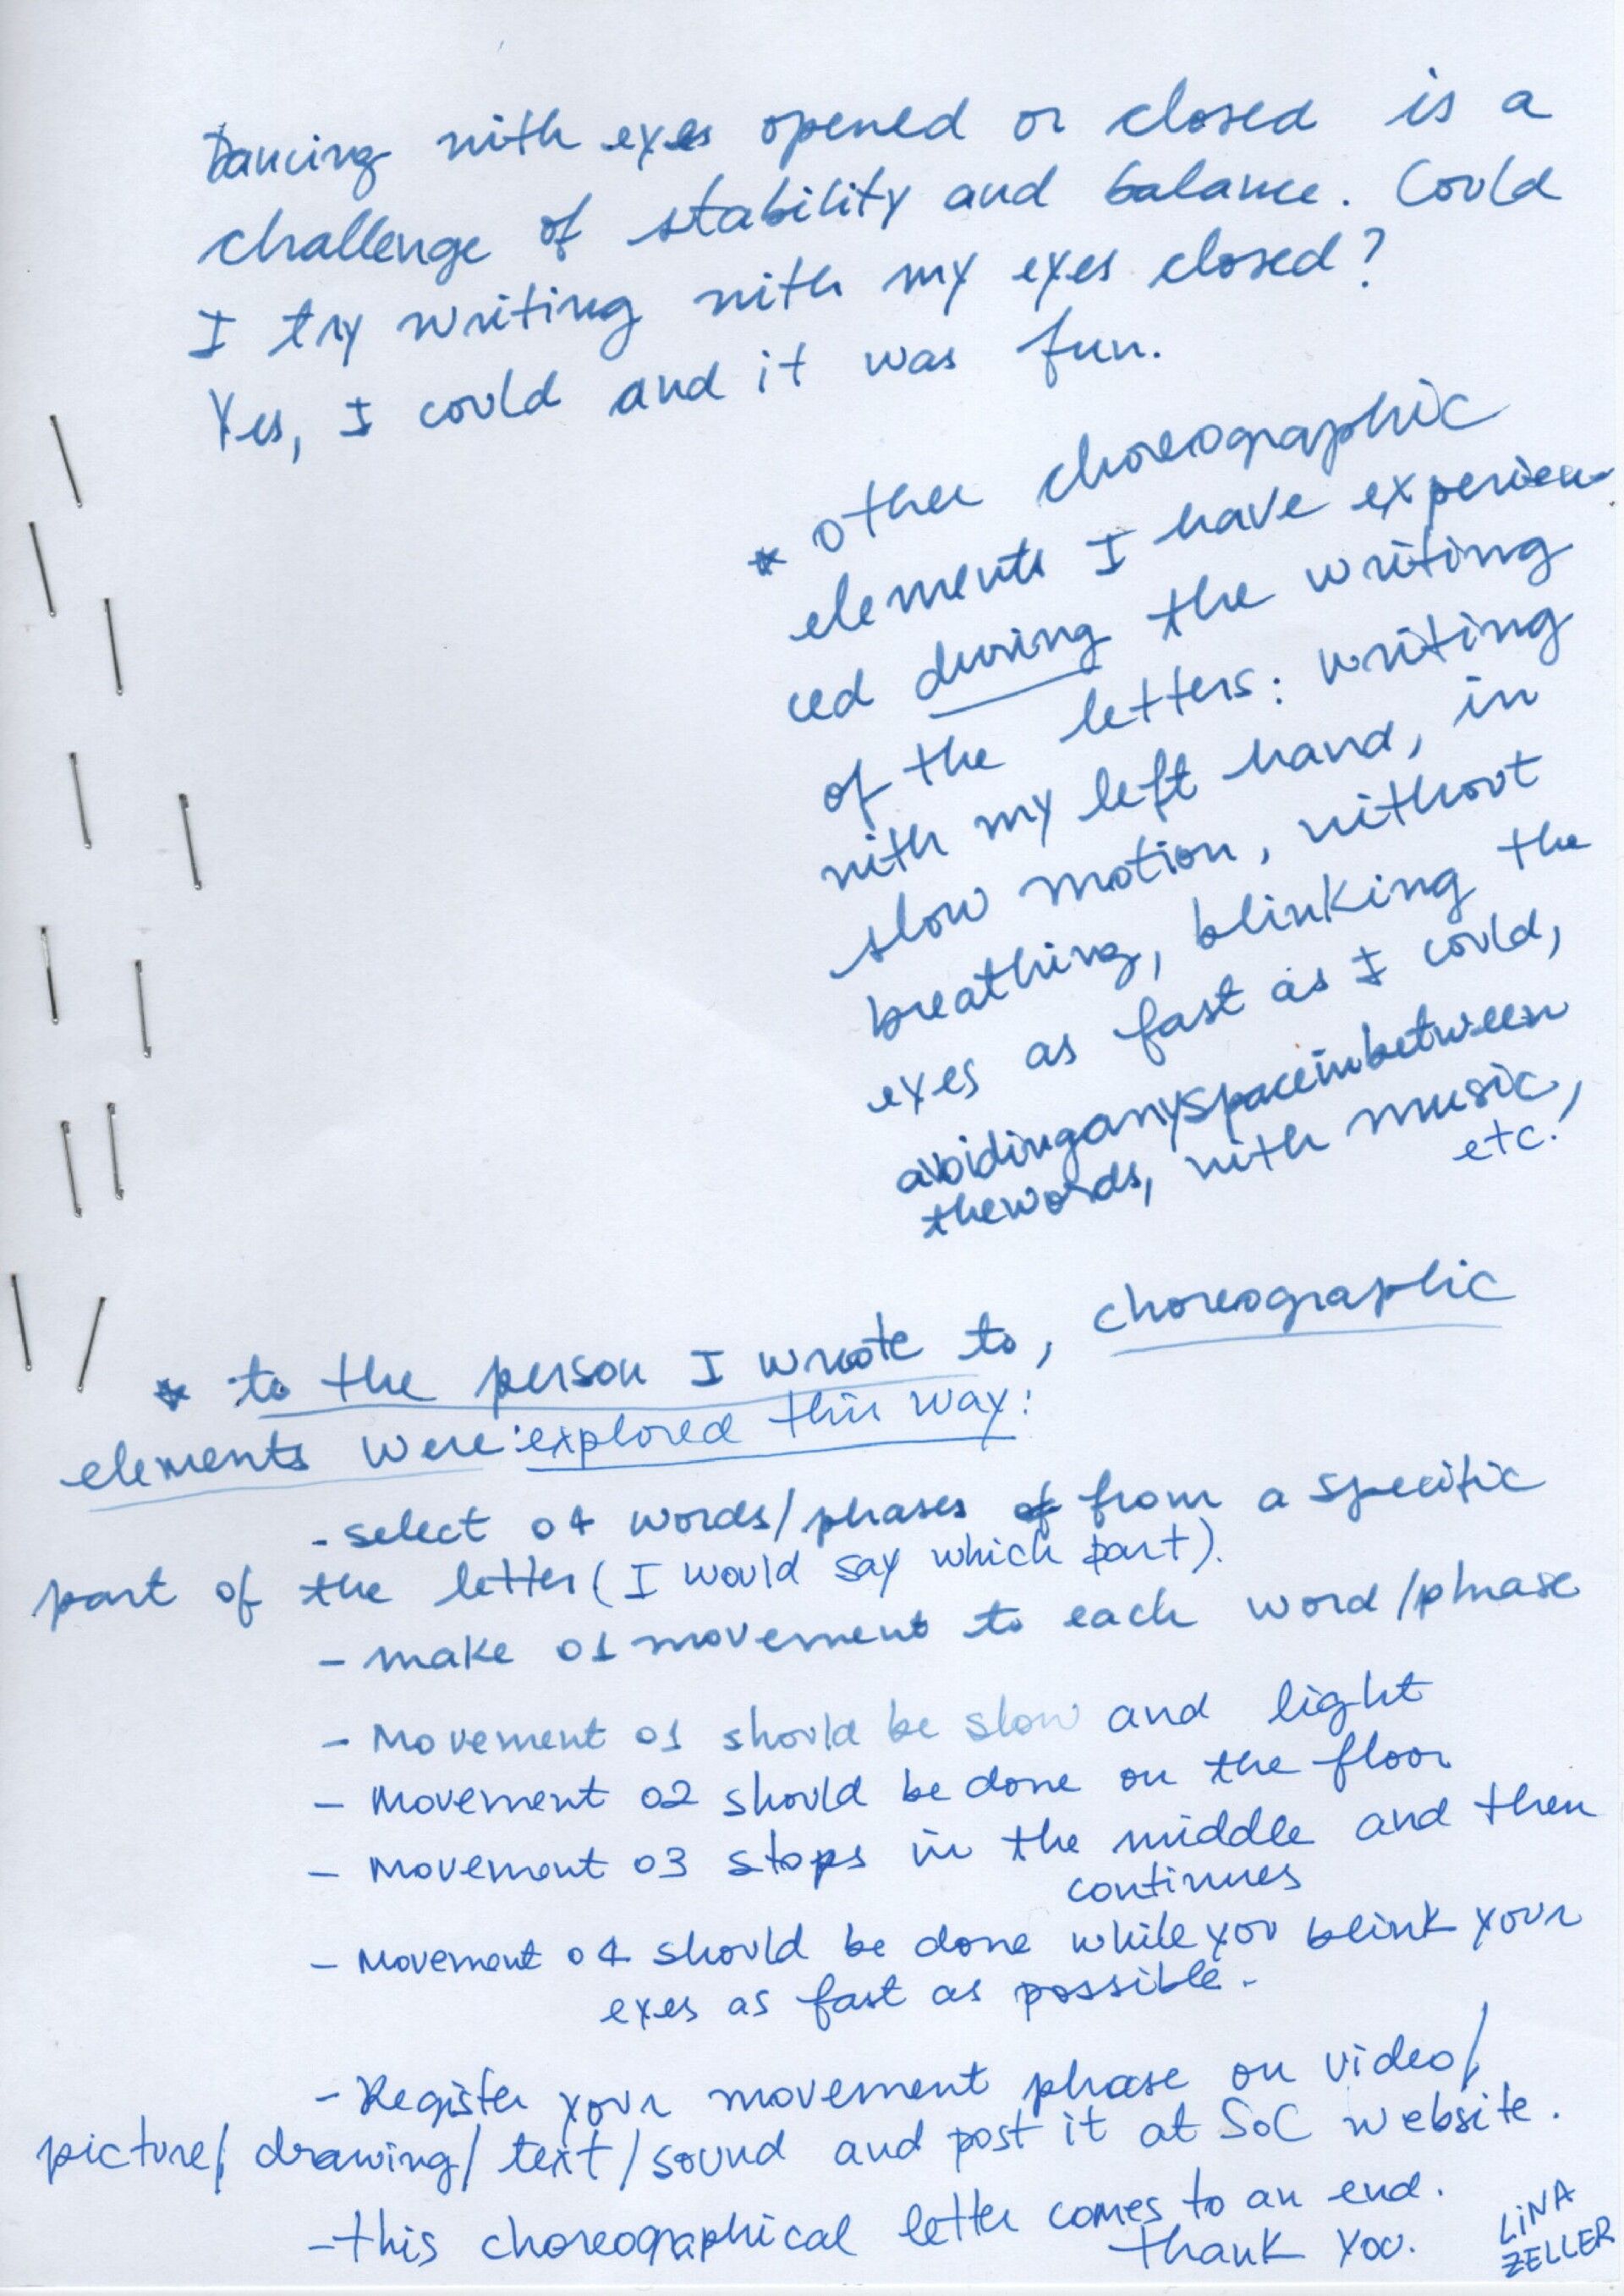 Dancing with eyes opened or closed is a
challenge of stability and balance. Could
I try writing with my eyes closed?
Yes, I could and it was fun.
* other choreographic
elements I have experien-
ced during the writing
of the letters: writing
with my left hand, in
slow motion, without
breathing, blinking the
eyes as fast as I could,
avoidinganyspaceinbetween
thewords, with music,
etc.
* to the person I wrote to, choreographic
elements were explored this way:
- select 04 words/phases of from a specific
part of the letter (I would say which part).
- make 01 movement to each word/phrase
- Movement 01 should be slow and light
- Movement 02 should be done on the floor
- Movement 03 stops in the middle and then
continues
- Movement 04 should be done while you blink your
eyes as fast as possible.
- Register your movement phase on video/
picture/ drawing/ text/ sound and post it at SoC website.
- this choreographical letter comes to an end.
Thank you.
LiNA
ZELLER